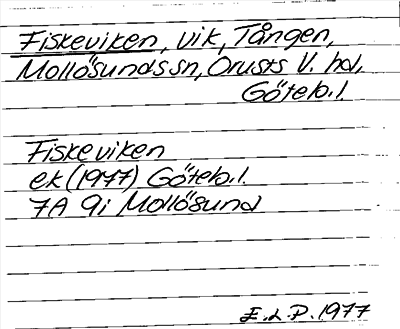 Fiskeviken, vik, Tången,
Mollösunds sn, Orusts V. hd,
Göteb.l.
Fiskeviken
ek (1977) Göteb.l.
7A 9i Mollösund
E.L.P. 1977